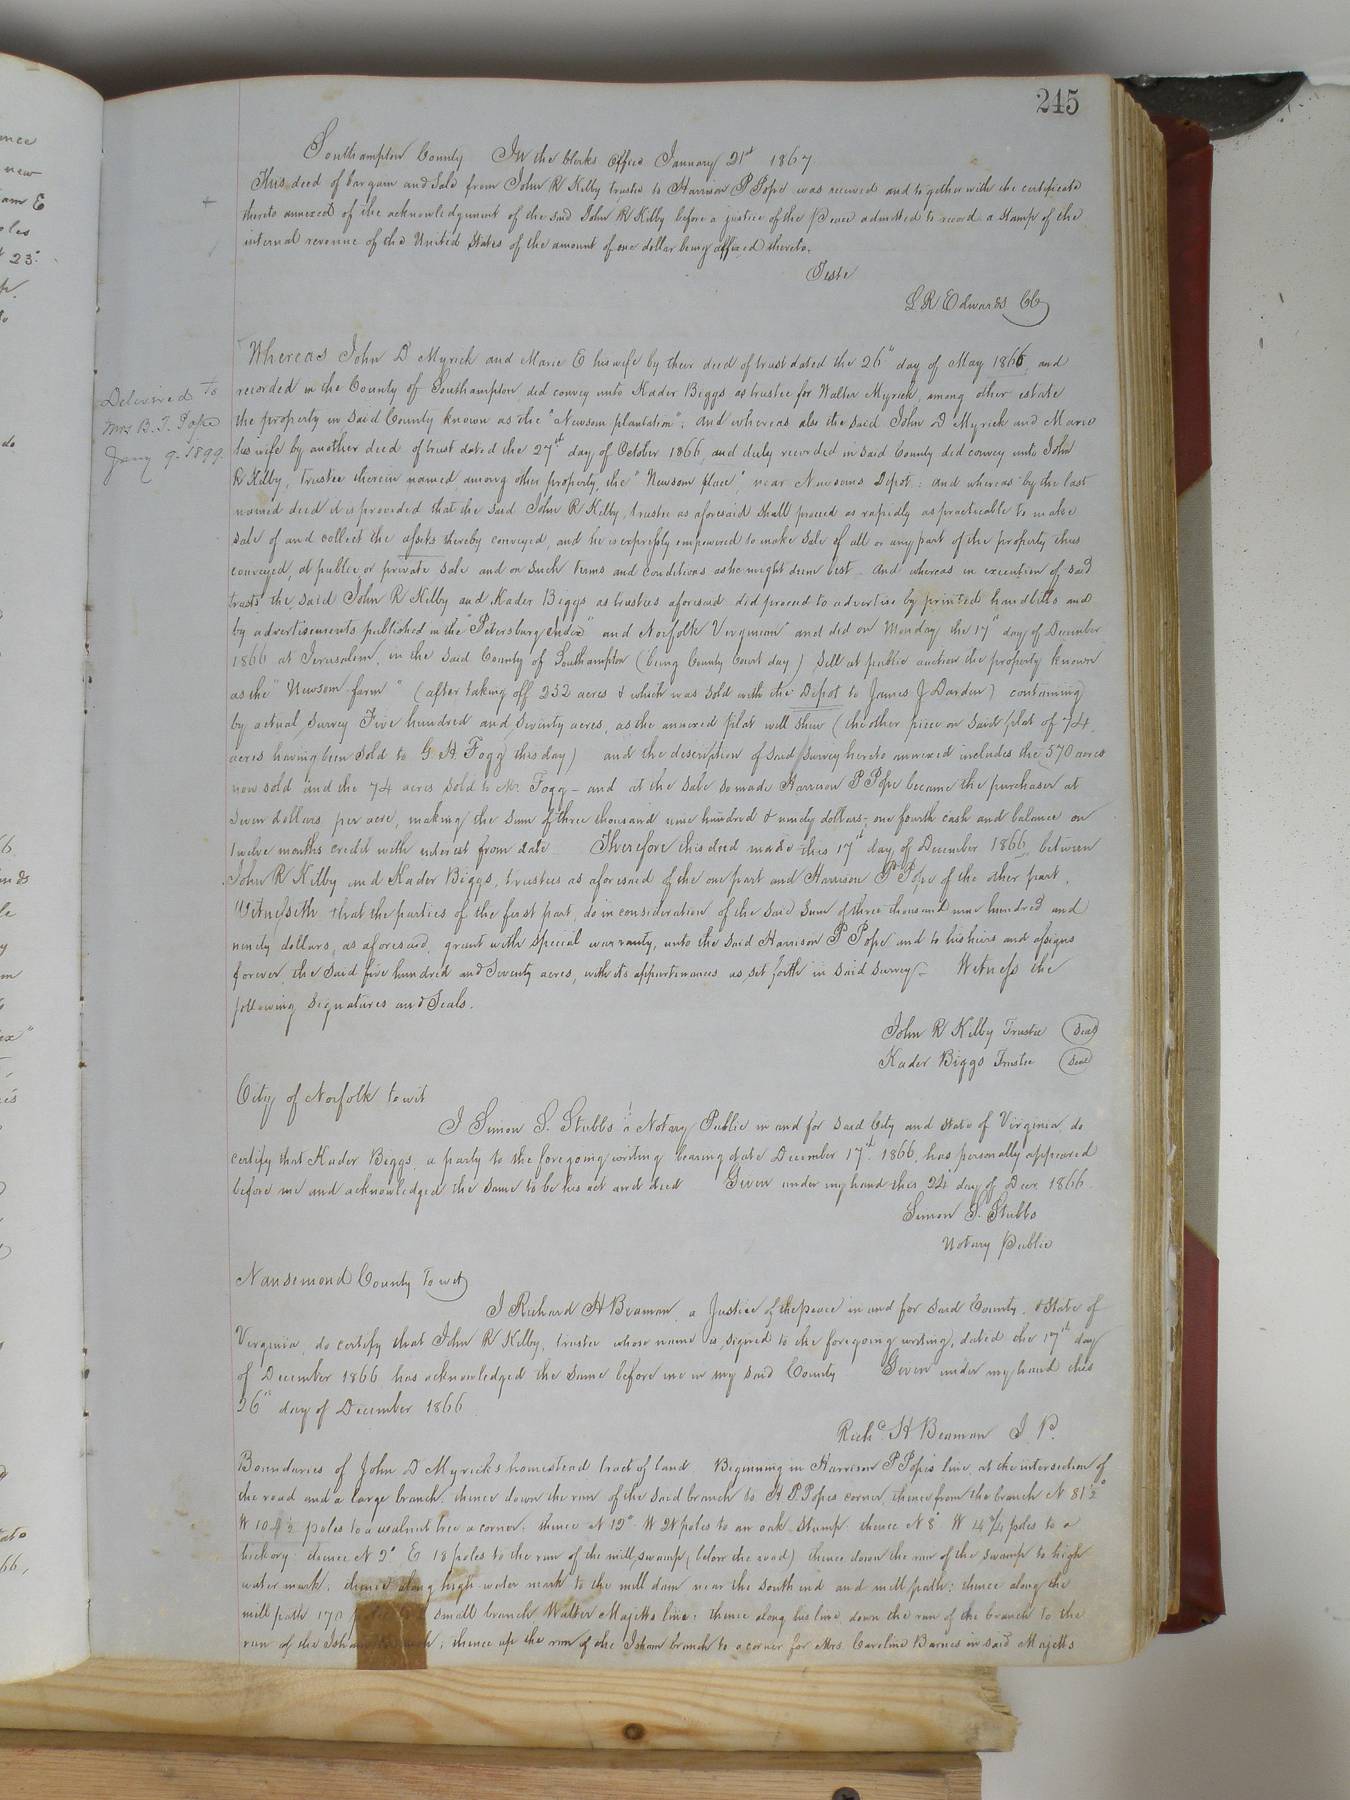 245
Southampton County In the Clerks Office January 21st 1867
This deed of bargain and Sale from John R Kilby trustee to Harrison P Pope was received and together with the certificate
thereto annexed of the acknowledgement of the said John R Kilby before a justice of the Peace admitted to record a stamp of the
internal revenue of the United States of the amount of one dollar being affixed thereto.
Teste
L R Edwards CC
Whereas John D Myrick and Marie E his wife by their deed of trust dated the 26" day of May 1866, and
recorded in the County of Southampton, did convey unto Kader Biggs as trustee for Walter Myrick, among other estate
the property in said County known as the "Newsom plantation"; and whereas also the said John D Myrick and Marie
his wife by another deed of trust dated the 27th day of October 1866, and duly recorded in said County did convey unto John
R Kilby, Trustee therein named among other property, the "Newsom place", near Newsoms Depot: and whereas by the last
named deed it is provided that the said John R Kilby, trustee as aforesaid shall proceed as rapidly as practicable to make
sale of and collect the assets thereby conveyed, and he is expressly empowered to make sale of all or any part of the property thus
conveyed, at public or private sale and on such terms and conditions as he might deem best. And whereas in execution of said
trusts the said John R Kilby and Kader Biggs as trustees aforesaid did proceed to advertise by printed handbills and
by advertisements published in the "Petersburg Index" and Norfolk Virginian" and did on Monday the 17th day of December
1866 at Jerusalem, in the said County of Southampton (being County Court day) sell at public auction the property known
as the "Newsom farm" (after taking off 252 acres & which was sold with the Depot to James J Darden) containing
by actual survey Five hundred and seventy acres, as the annexed plat will shew (the other piece on said plat of 74
acres having been sold to G. H. Fogg this day) and the description of said survey hereto annexed includes the 570 acres
now sold and the 74 acres sold to Mr. Fogg - and at the sale so made Harrison P Pope became the purchaser at
Seven dollars per acre, making the sum of three thousand nine hundred & ninety dollars; one fourth cash and balance on
Twelve months credit with interest from date Therefore this deed made this 17th day of December 1866 between
John R Kilby and Kader Biggs, trustees as aforesaid of the one part and Harrison P Pope of the other part,
Witnesseth that the parties of the first part, do in consideration of the said sum of three thousand nine hundred and
ninety dollars, as aforesaid, grant with special warranty, unto the said Harrison P Pope and to his heirs and assigns
forever the said five hundred and seventy acres, with its appurtenances as set forth in said survey - Witness the
following signatures and Seals.
John R Kilby Trustee (Seal)
Kader Biggs Trustee (Seal)
City of Norfolk to wit
I Simon S. Stubbs a Notary Public in and for said City and State of Virginia, do
certify that Kader Biggs, a party to the foregoing writing bearing date December 17th 1866, has personally appeared
before me and acknowledged the same to be his act and deed Given under my hand this 24 day of Decr 1866
Simon S. Stubbs
Notary Public
Nansemond County To wit
I Richard H Beaman, a Justice of the peace in and for said County, & State of
Virginia, do certify that John R Kilby, trustee whose name is signed to the foregoing writing, dated the 17th day
of December 1866 has acknowledged the same before me in my said County Given under my hand this
26" day of December 1866
Richd. H Beaman J. P.
Boundaries of John D Myricks homestead tract of land Beginning in Harrison P Popes line, at the intersection of
the road and a large branch, thence down the run of the said branch to H P Popes corner, thence from the branch N 81½°
W 10 poles to a walnut tree a corner; thence N 12° W 24 poles to an oak stump; thence N 8° W 4¾ poles to a
hickory: thence N 2° E 18 poles to the run of the mill swamp (below the road) thence down the run of the swamp to high
water mark; thence along high water mark to the mill dam near the south end and mill path; thence along the
mill path 170 small branch Walter Majetts line; thence along his line, down the run of the branch to the
run of the Isham Branch; thence up the run of the Isham branch to a corner for Mrs. Caroline Barnes in said Majetts
Delivered To
Mrs B. T. Pope
Jany 9 - 1899